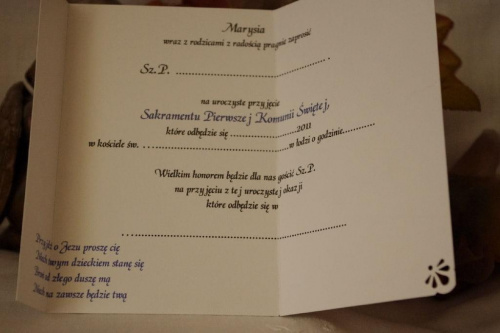 Marysia
wraz z rodzicami z radością pragnie zaprosić
Sz.P. ............................................
na uroczyste przyjęcie
Sakramentu Pierwszej Komunii Świętej,
które odbędzie się ......................2011
w kościele św. ............................................w Łodzi o godzinie...........
Wielkim honorem będzie dla nas gościć Sz.P.
na przyjęciu z tej uroczystej okazji
które odbędzie się w
............................................
Przyjdź o Jezu proszę cię
Niech twym dzieckiem stanę się
Broń od złego duszę mą
Niech na zawsze będzie twą